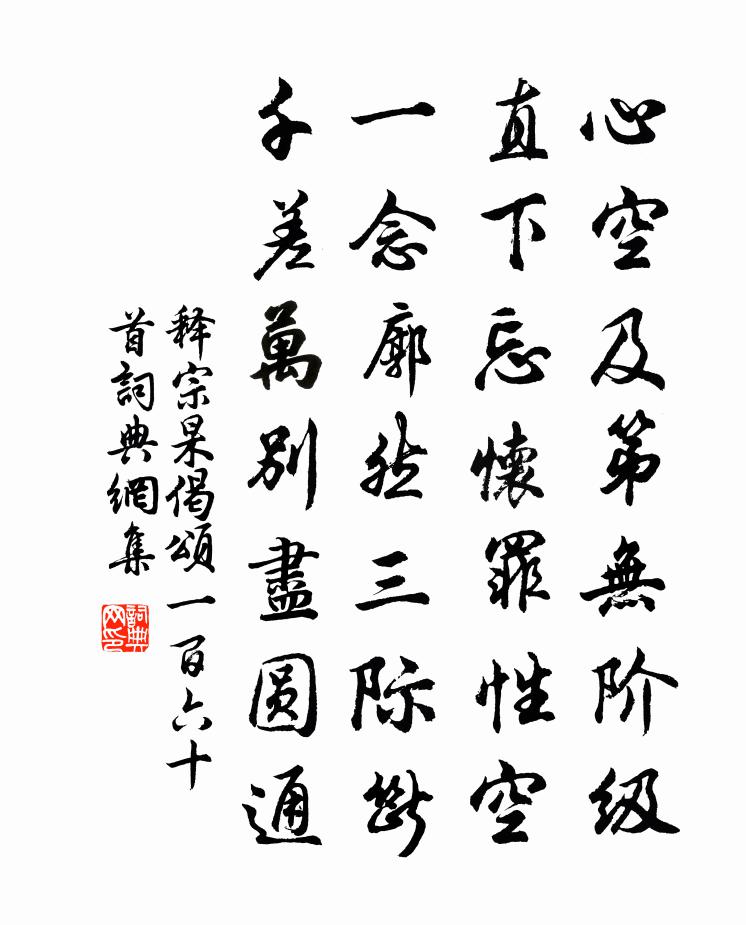 心空及第無阶级
直下忘懷罪性空
一念廓然三际断
千差萬别盡圆通
释宗杲偈頌一百六十
首詞典網集
詞典網印